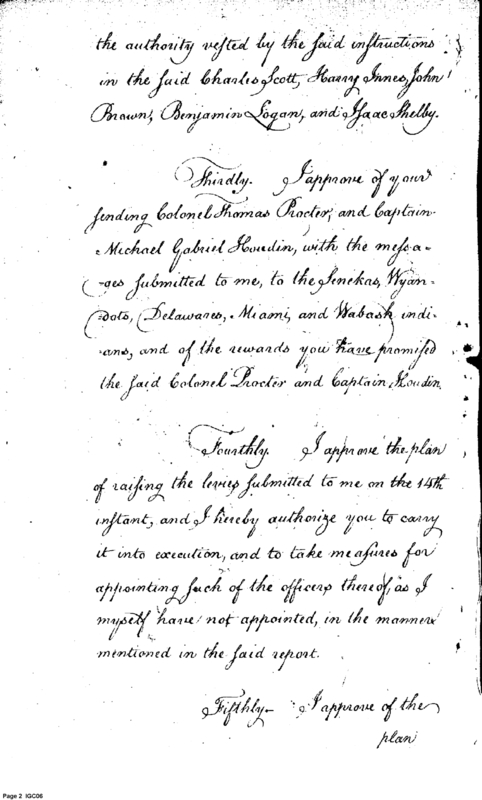 the authority vested by the said instructions
in the said Charles Scott, Harry Innes, John
Brown, Benjamin Logan, and Isaac Shelby.
Thirdly. I approve of your
sending Colonel Thomas Procter, and Captain
Michael Gabriel Houdin, with the messa-
-ges submitted to me, to the Senekas, Wyan-
dots, Delawares, Miami, and Wabash indi-
ans, and of the rewards you have promised
the said Colonel Procter and Captain Houdin.
Fourthly. I approve the plan
of raising the levies submitted to me on the 14th
instant, and I hereby authorize you to carry
it into execution, and to take measures for
appointing such of the officers thereof, as I
myself have not appointed, in the manner
mentioned in the said report.
Fifthly. I approve of the
plan
Page 2 IGC06